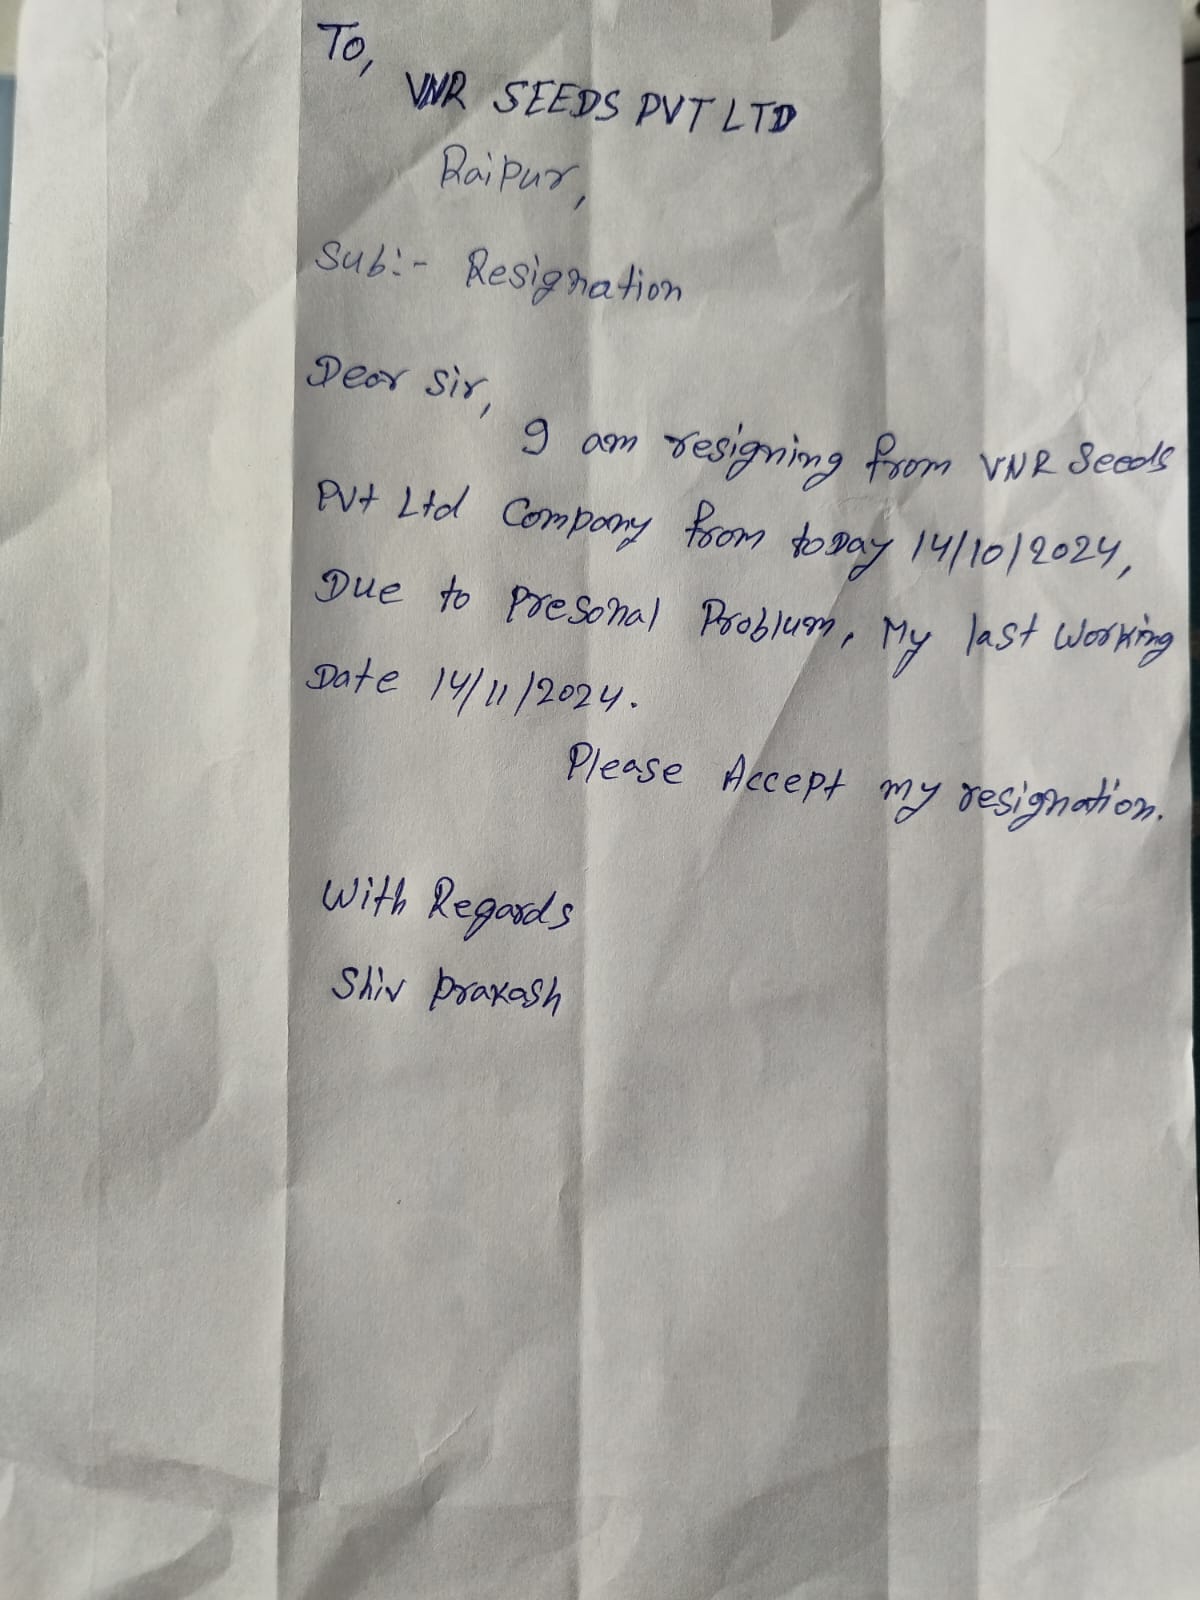 To,
VNR SEEDS PVT LTD
Raipur,
Sub:- Resignation
Dear Sir,
I am resigning from VNR Seeds
Pvt Ltd Company from toDay 14/10/2024,
Due to Presonal Problum, My last Working
Date 14/11/2024.
Please Accept my resignation.
With Regards
Shiv prakash